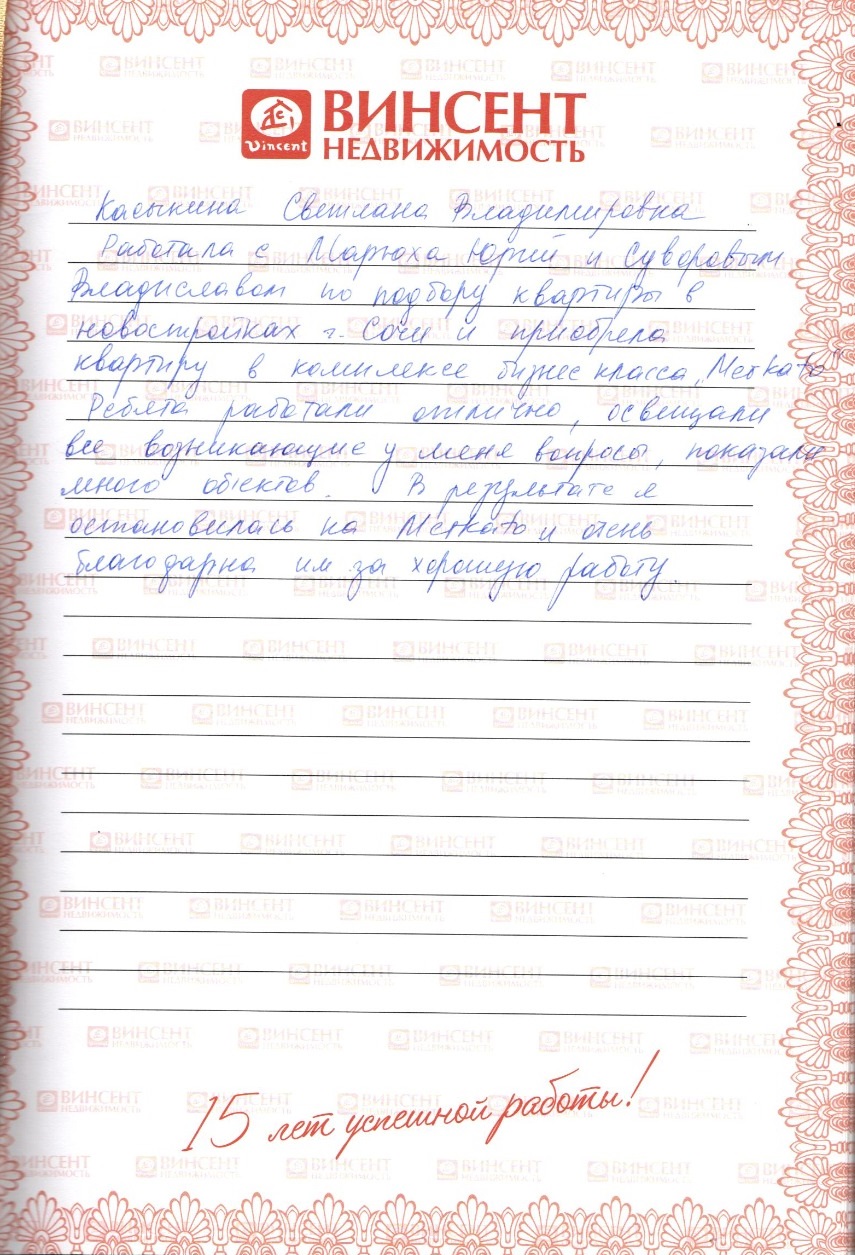 Vincent
ВИНСЕНТ
НЕДВИЖИМОСТЬ
Касыкина Светлана Владимировна
Работала с Марюха Юрий и Суворовым
Владиславом по подбору квартиры в
новостройках г. Сочи и приобрела
квартиру в комплексе бизнес класса „Меrkato"
Ребята работали отлично, освещали
все возникающие у меня вопросы, показали
много объектов. В результате я
остановилась на Меrkato и очень
благодарна им за хорошую работу.
15 лет успешной работы!